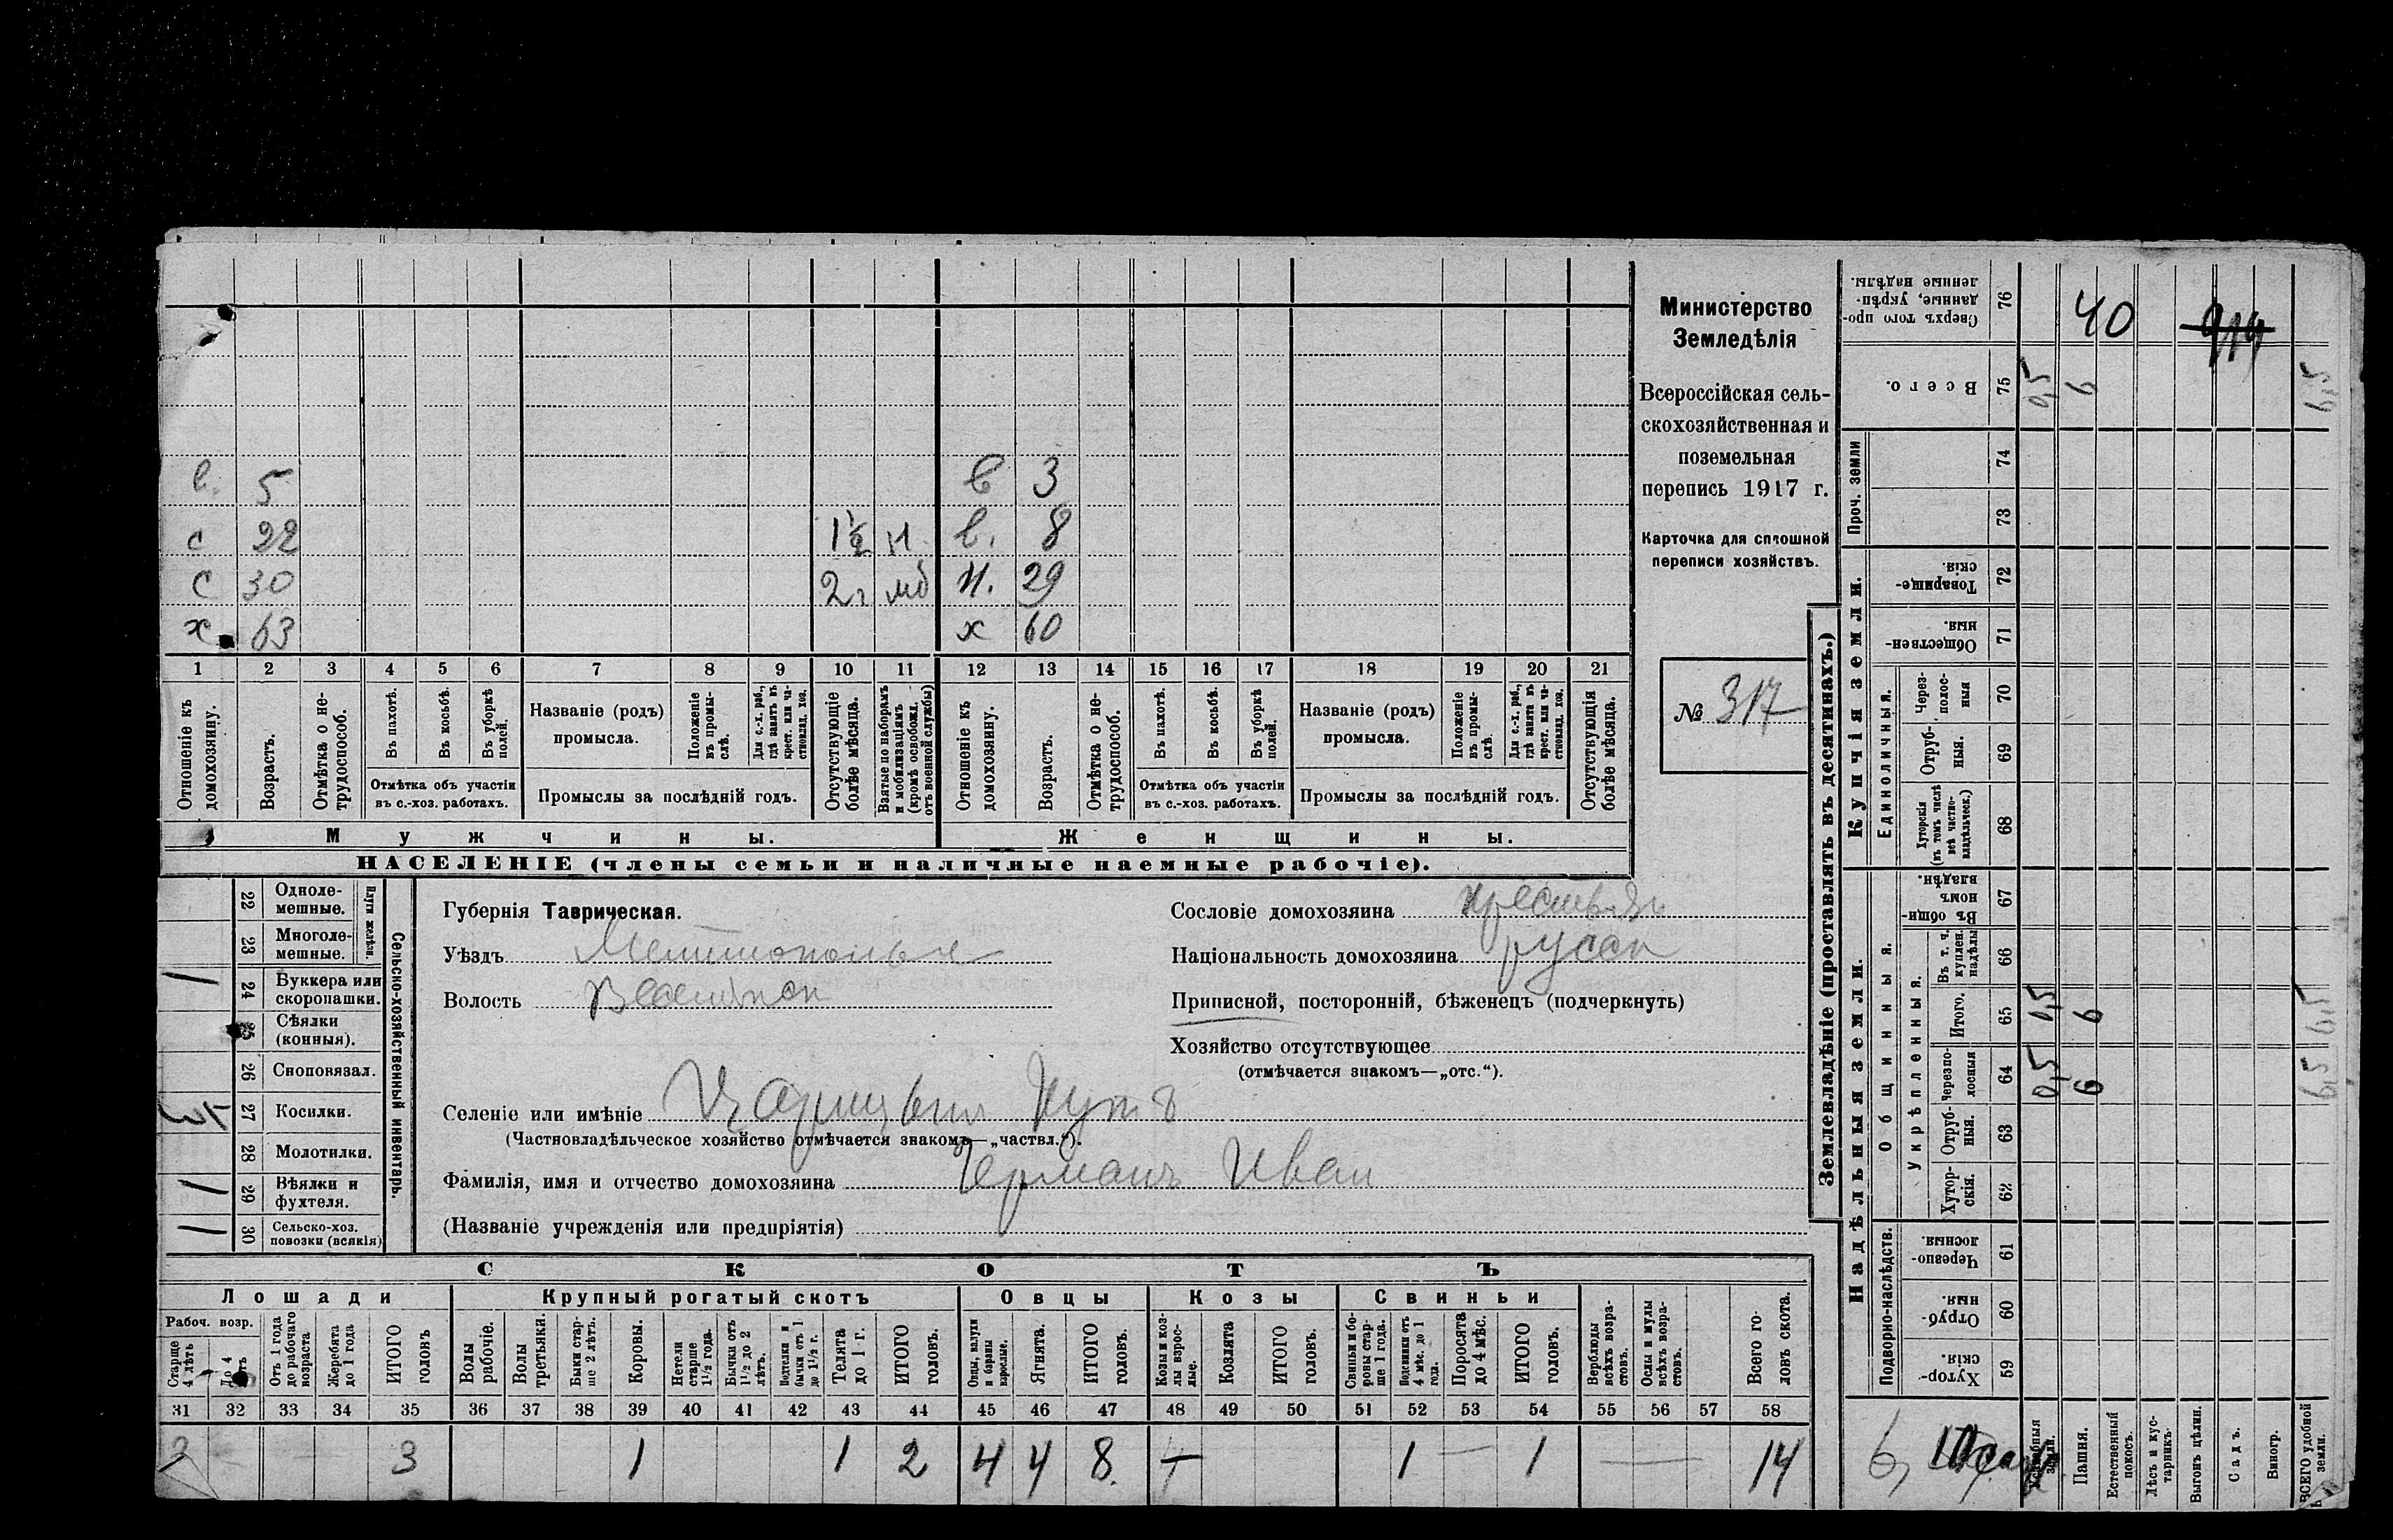 в. 5 в 3
с 22 1½ в. 8
с 30 2 г мб н. 29
х 63 х 60
1 2 3 4 5 6 7 8 9 10 11 12 13 14 15 16 17 18 19 20 21
Отношеніе къ домохозяину.
Возрастъ.
Отмѣтка о не-
трудоспособ.
Въ пахотѣ.
Въ косьбѣ.
Въ уборкѣ
полей.
Отмѣтка объ участіи
въ с.-хоз. работахъ.
Названіе (родъ)
промысла.
Положеніе
въ промы-
слѣ.
Для с.-х. раб.,
гдѣ занятъ въ
крест. или ча-
стновлад. хоз.
Промыслы за послѣдній годъ.
Отсутствующіе
болѣе мѣсяца.
Взятые по наборамъ
и мобилизаціямъ
(кромѣ освобожд.
отъ военной службы)
Отношеніе къ
домохозяину.
Возрастъ.
Отмѣтка о не-
трудоспособ.
Въ пахотѣ.
Въ косьбѣ.
Въ уборкѣ
полей.
Отмѣтка объ участіи
въ с.-хоз. работахъ.
Названіе (родъ)
промысла.
Положеніе
въ промы-
слѣ.
Для с.-х. раб.,
гдѣ занята въ
крест. или ча-
стновлад. хоз.
Промыслы за послѣдній годъ.
Отсутствующія
болѣе мѣсяца.
Мужчины. Женщины.
НАСЕЛЕНІЕ (члены семьи и наличные наемные рабочіе).
Министерство
Земледѣлія
Всероссійская сель-
скохозяйственная и
поземельная
перепись 1917 г.
Карточка для сплошной
переписи хозяйствъ.
№ 317
22 Одноле-
мешные.
23 Многоле-
мешные.
Плуги желѣзн.
24 Буккера или
скоропашки.
25 Сѣялки
(конныя).
26 Сноповязал.
27 Косилки.
28 Молотилки.
29 Вѣялки и
фухтеля.
30 Сельско-хоз.
повозки (всякія)
Сельско-хозяйственный инвентарь.
Губернія Таврическая.
Уѣздъ
Волость
Селеніе или имѣніе
(Частновладѣльческое хозяйство отмѣчается знакомъ—„частвл.“).
Фамилія, имя и отчество домохозяина Германъ Иван
(Названіе учрежденія или предпріятія)
Сословіе домохозяина
Національность домохозяина русск
Приписной, посторонній, бѣженецъ (подчеркнуть)
Хозяйство отсутствующее
(отмѣчается знакомъ—„отс.“).
СКОТЪ
Лошади Крупный рогатый скотъ Овцы Козы Свиньи
Рабоч. возр.
Старше
4 лѣтъ
До 4
лѣтъ
Отъ 1 года
до рабочаго
возраста
Жеребята
до 1 года
ИТОГО
головъ
Волы
рабочіе.
Волы
третьяки.
Быки стар-
ше 2 лѣтъ.
Коровы.
Нетели
старше
1½ года.
Бычки отъ
1½ до 2
лѣтъ.
Подтелки и
бычки отъ 1
до 1½ г.
Телята
до 1 г.
ИТОГО
головъ.
Овцы, валухи
и бараны
взрослые.
Ягнята.
ИТОГО
головъ.
Козы и коз-
лы взрос-
лые.
Козлята
ИТОГО
головъ.
Свиньи и бо-
ровы стар-
ше 1 года.
Подсвинки отъ
4 мѣс. до 1
года.
Поросята
до 4 мѣс.
ИТОГО
головъ.
Верблюды
всѣхъ возра-
стовъ.
Ослы и мулы
всѣхъ возра-
стовъ.
Всего го-
ловъ скота.
31 32 33 34 35 36 37 38 39 40 41 42 43 44 45 46 47 48 49 50 51 52 53 54 55 56 57 58
3 3 1 1 2 4 4 8. 1 — 1 — 14
Землевладѣніе (проставлять въ десятинахъ.)
Сверхъ того про-
данные, укрѣп-
ленные надѣлы. 76 40
Всего. 75 0,5 6 6,5
Проч. земли 74
73
Купчія земли.
Товарище-
скія. 72
Обществен-
ныя. 71
Единоличныя.
Через-
полос-
ныя 70
Отруб-
ныя. 69
Хуторскія
(въ томъ числѣ
всѣ частно-
владѣльческ.) 68
Надѣльныя земли.
Общинныя.
Въ общин-
номъ
владѣн. 67
Укрѣпленныя.
Въ т. ч.
куплен.
надѣлы 66
Итого. 65 0,5 6 6,5
Черезпо-
лосныя 64 0,5 6 6,5
Отруб-
ныя. 63
Хутор-
скія. 62
Подворно-наслѣдств.
Черезпо-
лосныя. 61
Отруб-
ныя. 60
Хутор-
скія. 59
Усадебныя
земли.
Пашня.
Естественный
покосъ.
Лѣсъ и кус-
тарникъ.
Выгонъ цѣлин.
Садъ.
Виногр.
ВСЕГО удобной
земли.